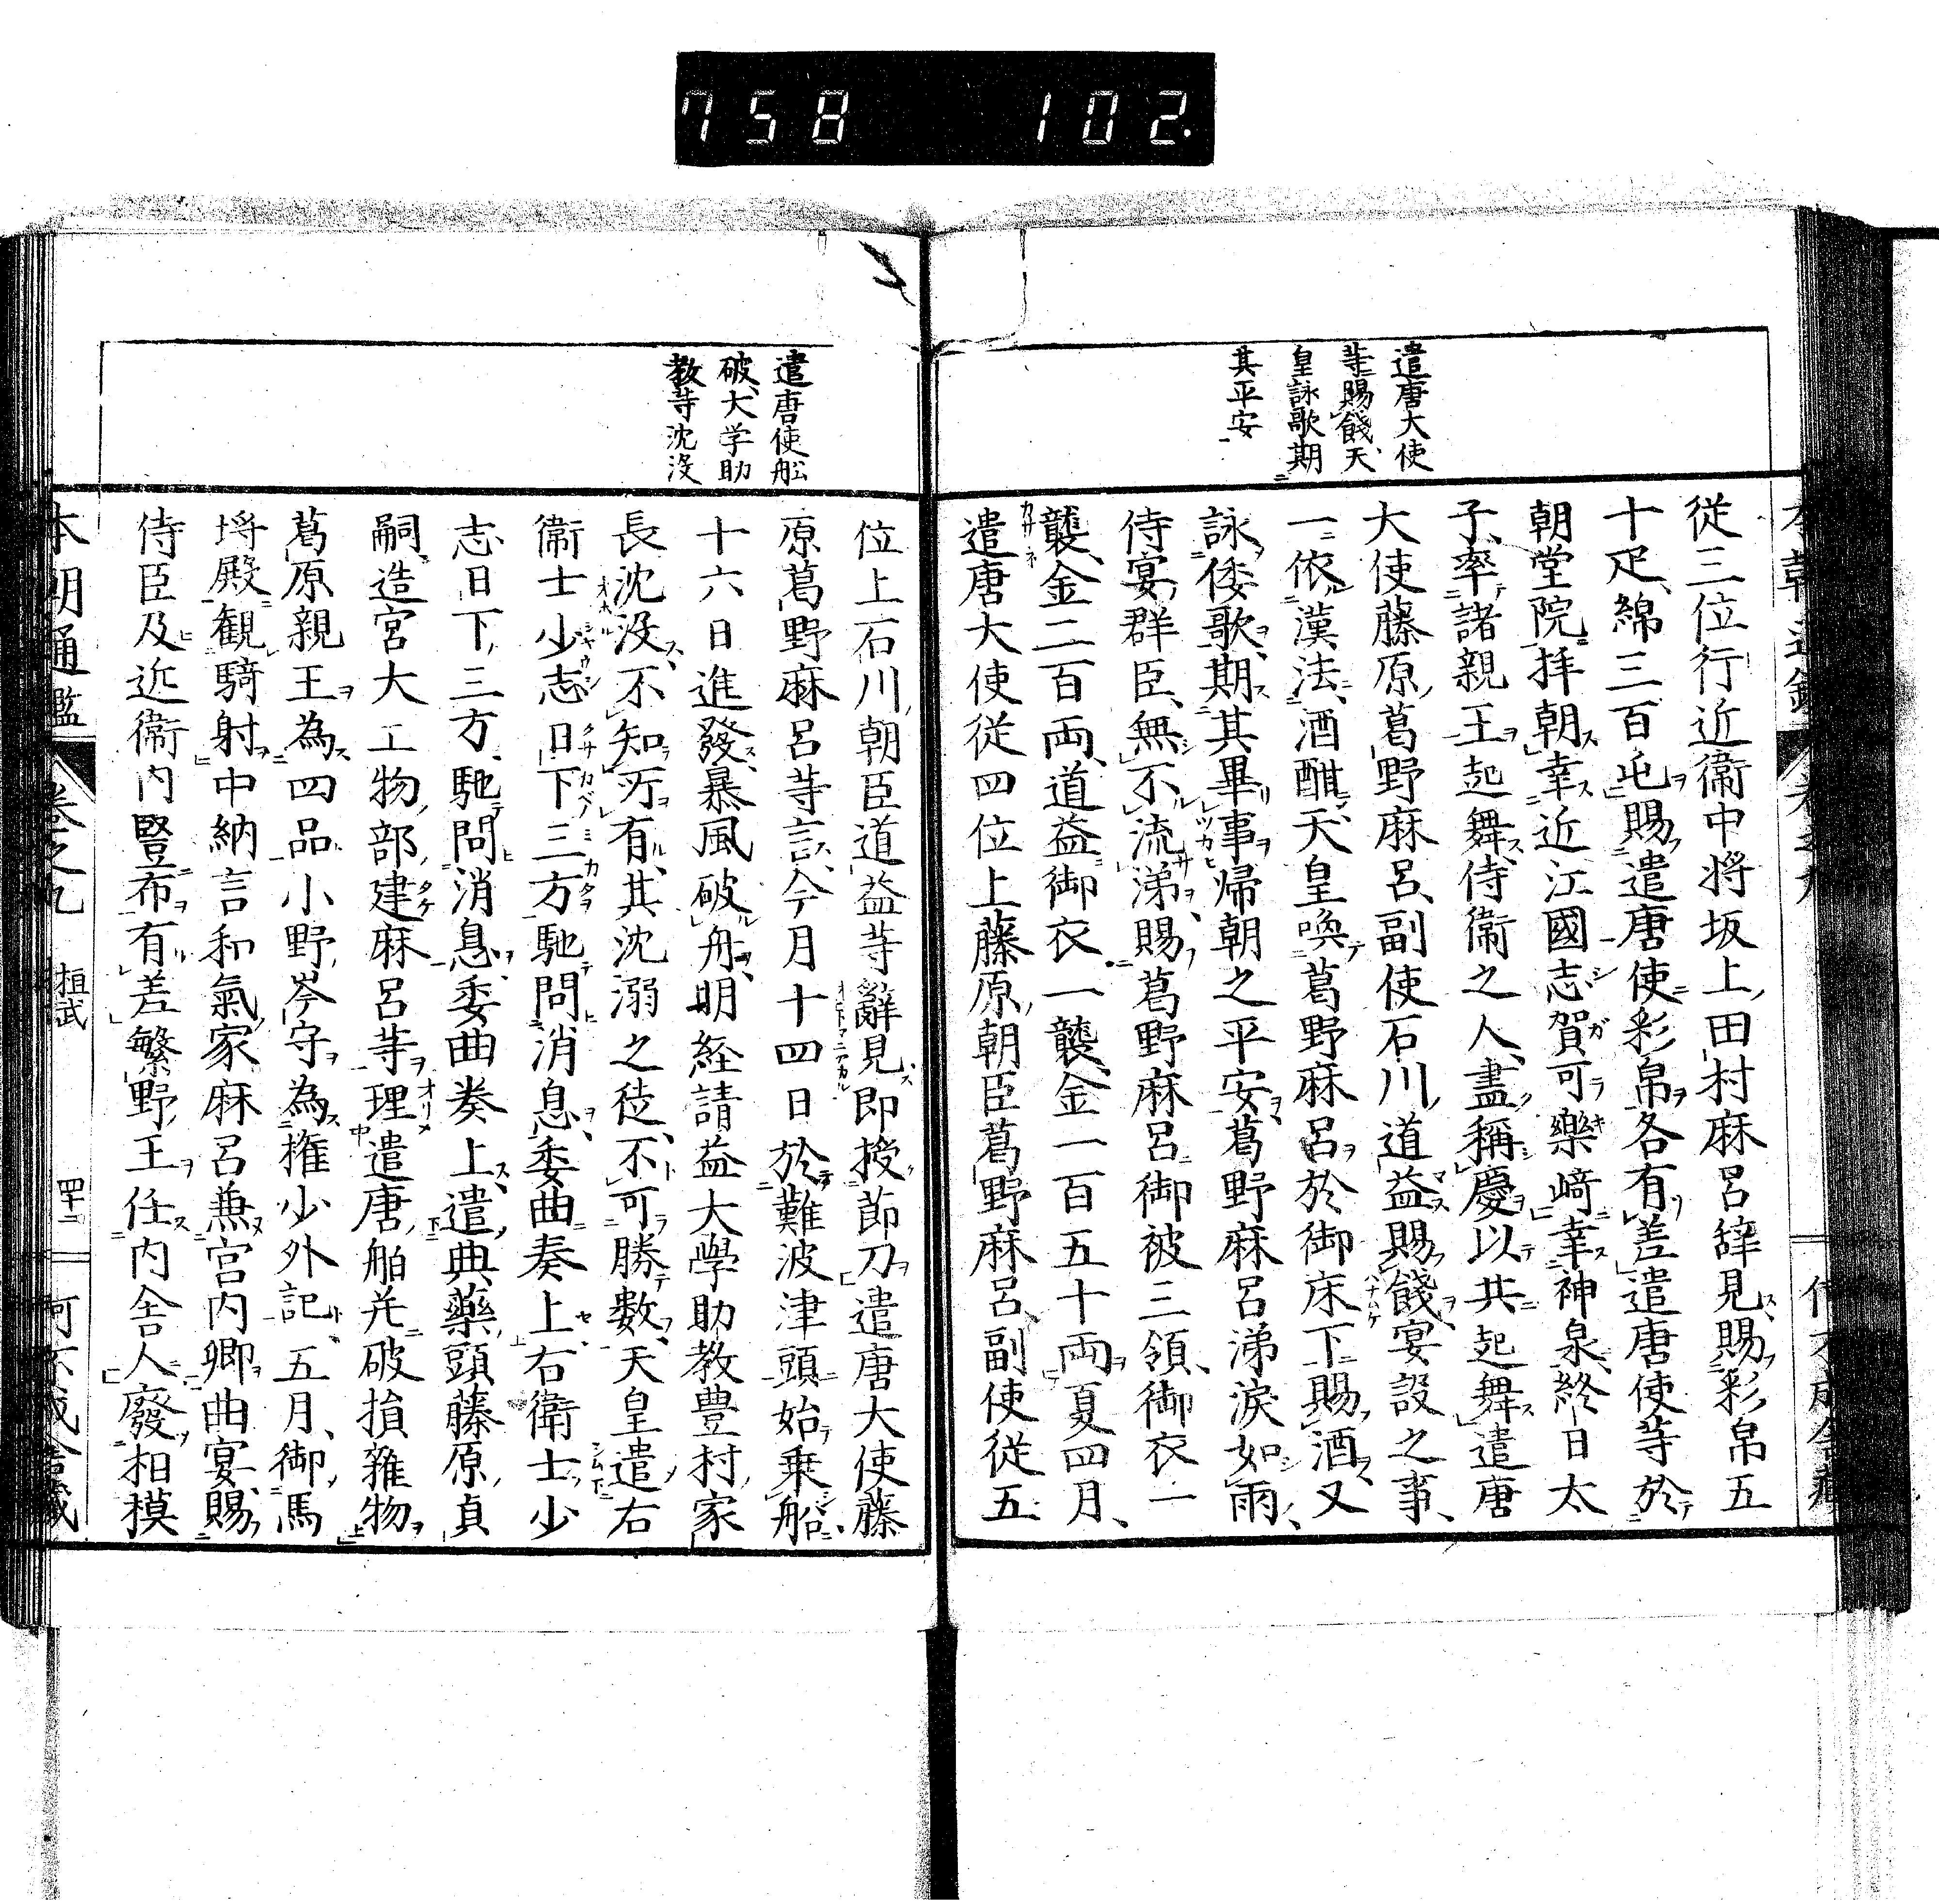 758 102
遣唐大使
等賜餞天
皇詠歌期
其平安
從三位行近衞中將坂上田村麻呂辭見賜彩帛五
十疋綿三百屯賜遣唐使彩帛各有差遣唐使等於
朝堂院拜朝幸近江國志賀可樂﨑幸神泉終日太
子率諸親王起舞侍衞之人盡稱慶以共起舞遣唐
大使藤原葛野麻呂副使石川道益賜餞宴設之事
一依漢法酒酣天皇喚葛野麻呂於御床下賜酒又
詠倭歌期其畢事帰朝之平安葛野麻呂涕淚如雨
侍宴群臣無不流涕賜葛野麻呂御被三領御衣一
襲金二百両道益御衣一襲金一百五十両夏四月
遣唐大使従四位上藤原朝臣葛野麻呂副使従五
遣唐使舩
破大学助
教等沈没
位上石川朝臣道益等辭見即授節刀遣唐大使藤
原葛野麻呂等言今月十四日於難波津頭始乗船
十六日進發暴風破舟明経請益大學助教豊村家
長沈没不知所有其沈溺之徒不可勝数天皇遣右
衞士少志日下三方馳問消息委曲奏上右衞士少
志日下三方馳問消息委曲奏上遣典藥頭藤原貞
嗣造宮大工物部建麻呂等理遣唐舶并破損雜物
葛原親王為四品小野岑守為権少外記五月御馬
埒殿観騎射中納言和氣家麻呂兼宮内卿曲宴賜
侍臣及近衞内豎布有差繁野王任内舎人廢相模
本朝通鑑 卷之九 桓武 四十二